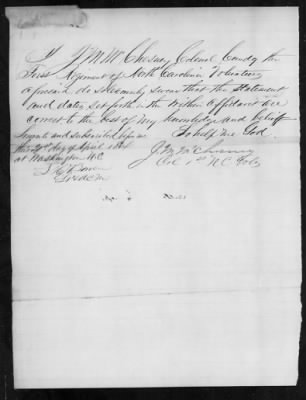 I J M McChesney Colonel Comdg the
First Regiment of North Carolina Volunteers
aforesaid do solemnly swear that the statement
and dates set forth in the within affidavit are
correct to the best of my knowledge and belief
So help me God.
Sworn and subscribed before me
this day of April 1864
at Washington N.C.
J M McChesney
Col 1st N.C. Vols